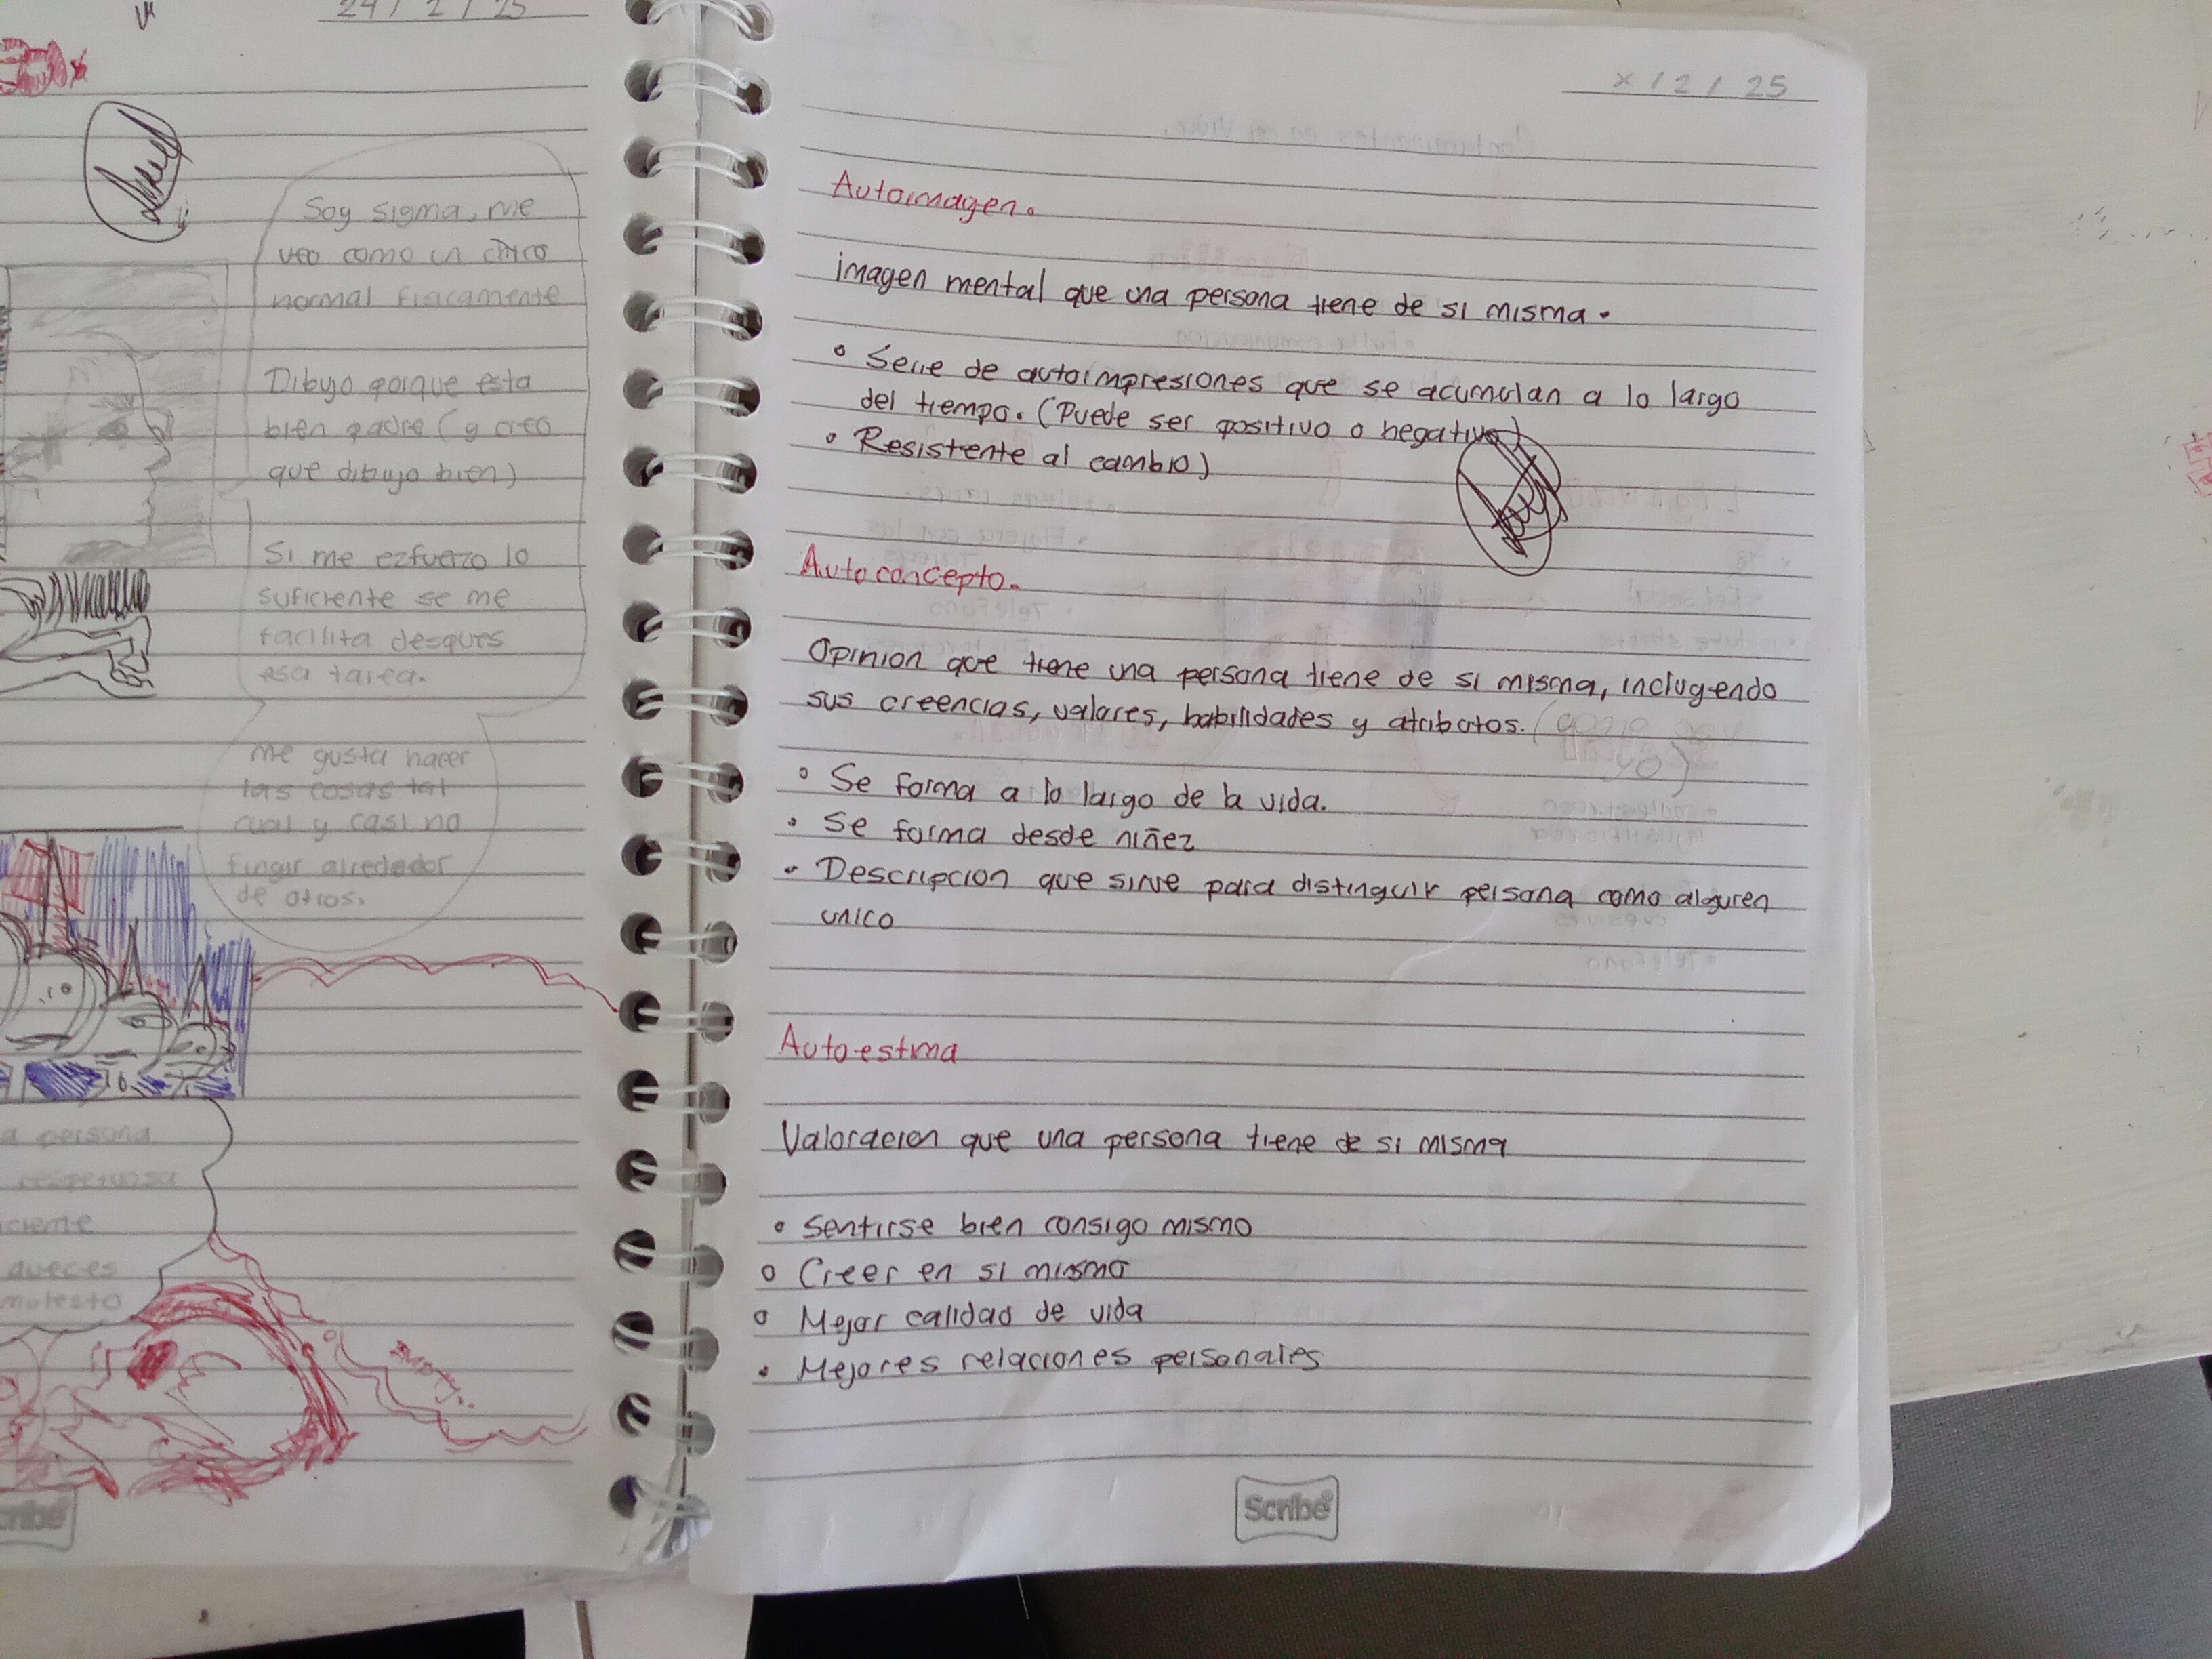 24 / 2 / 25
Soy sigma, me
veo como un chico
normal fisicamente
Dibujo porque esta
bien padre (y creo
que dibujo bien)
Si me ezfuerzo lo
suficiente se me
facilita despues
esa tarea.
me gusta hacer
las cosas tal
cual y casi no
fingir alrededor
de otros.
a persona
respetuosa
ciente
aveces
molesto
cribe
x / 2 / 25
Autoimagen.
imagen mental que una persona tiene de si misma.
• Serie de autoimpresiones que se acumulan a lo largo
del tiempo. (Puede ser positivo o negativo)
• Resistente al cambio)
Autoconcepto.
Opinion que tiene una persona tiene de si misma, incluyendo
sus creencias, valores, habilidades y atributos. (
yo)
• Se forma a lo largo de la vida.
• Se forma desde niñez
• Descripcion que sirve para distinguir persona como alguien
unico
Autoestima
Valoracion que una persona tiene de si misma
• Sentirse bien consigo mismo
• Creer en si mismo
• Mejor calidad de vida
• Mejores relaciones personales
Scribe